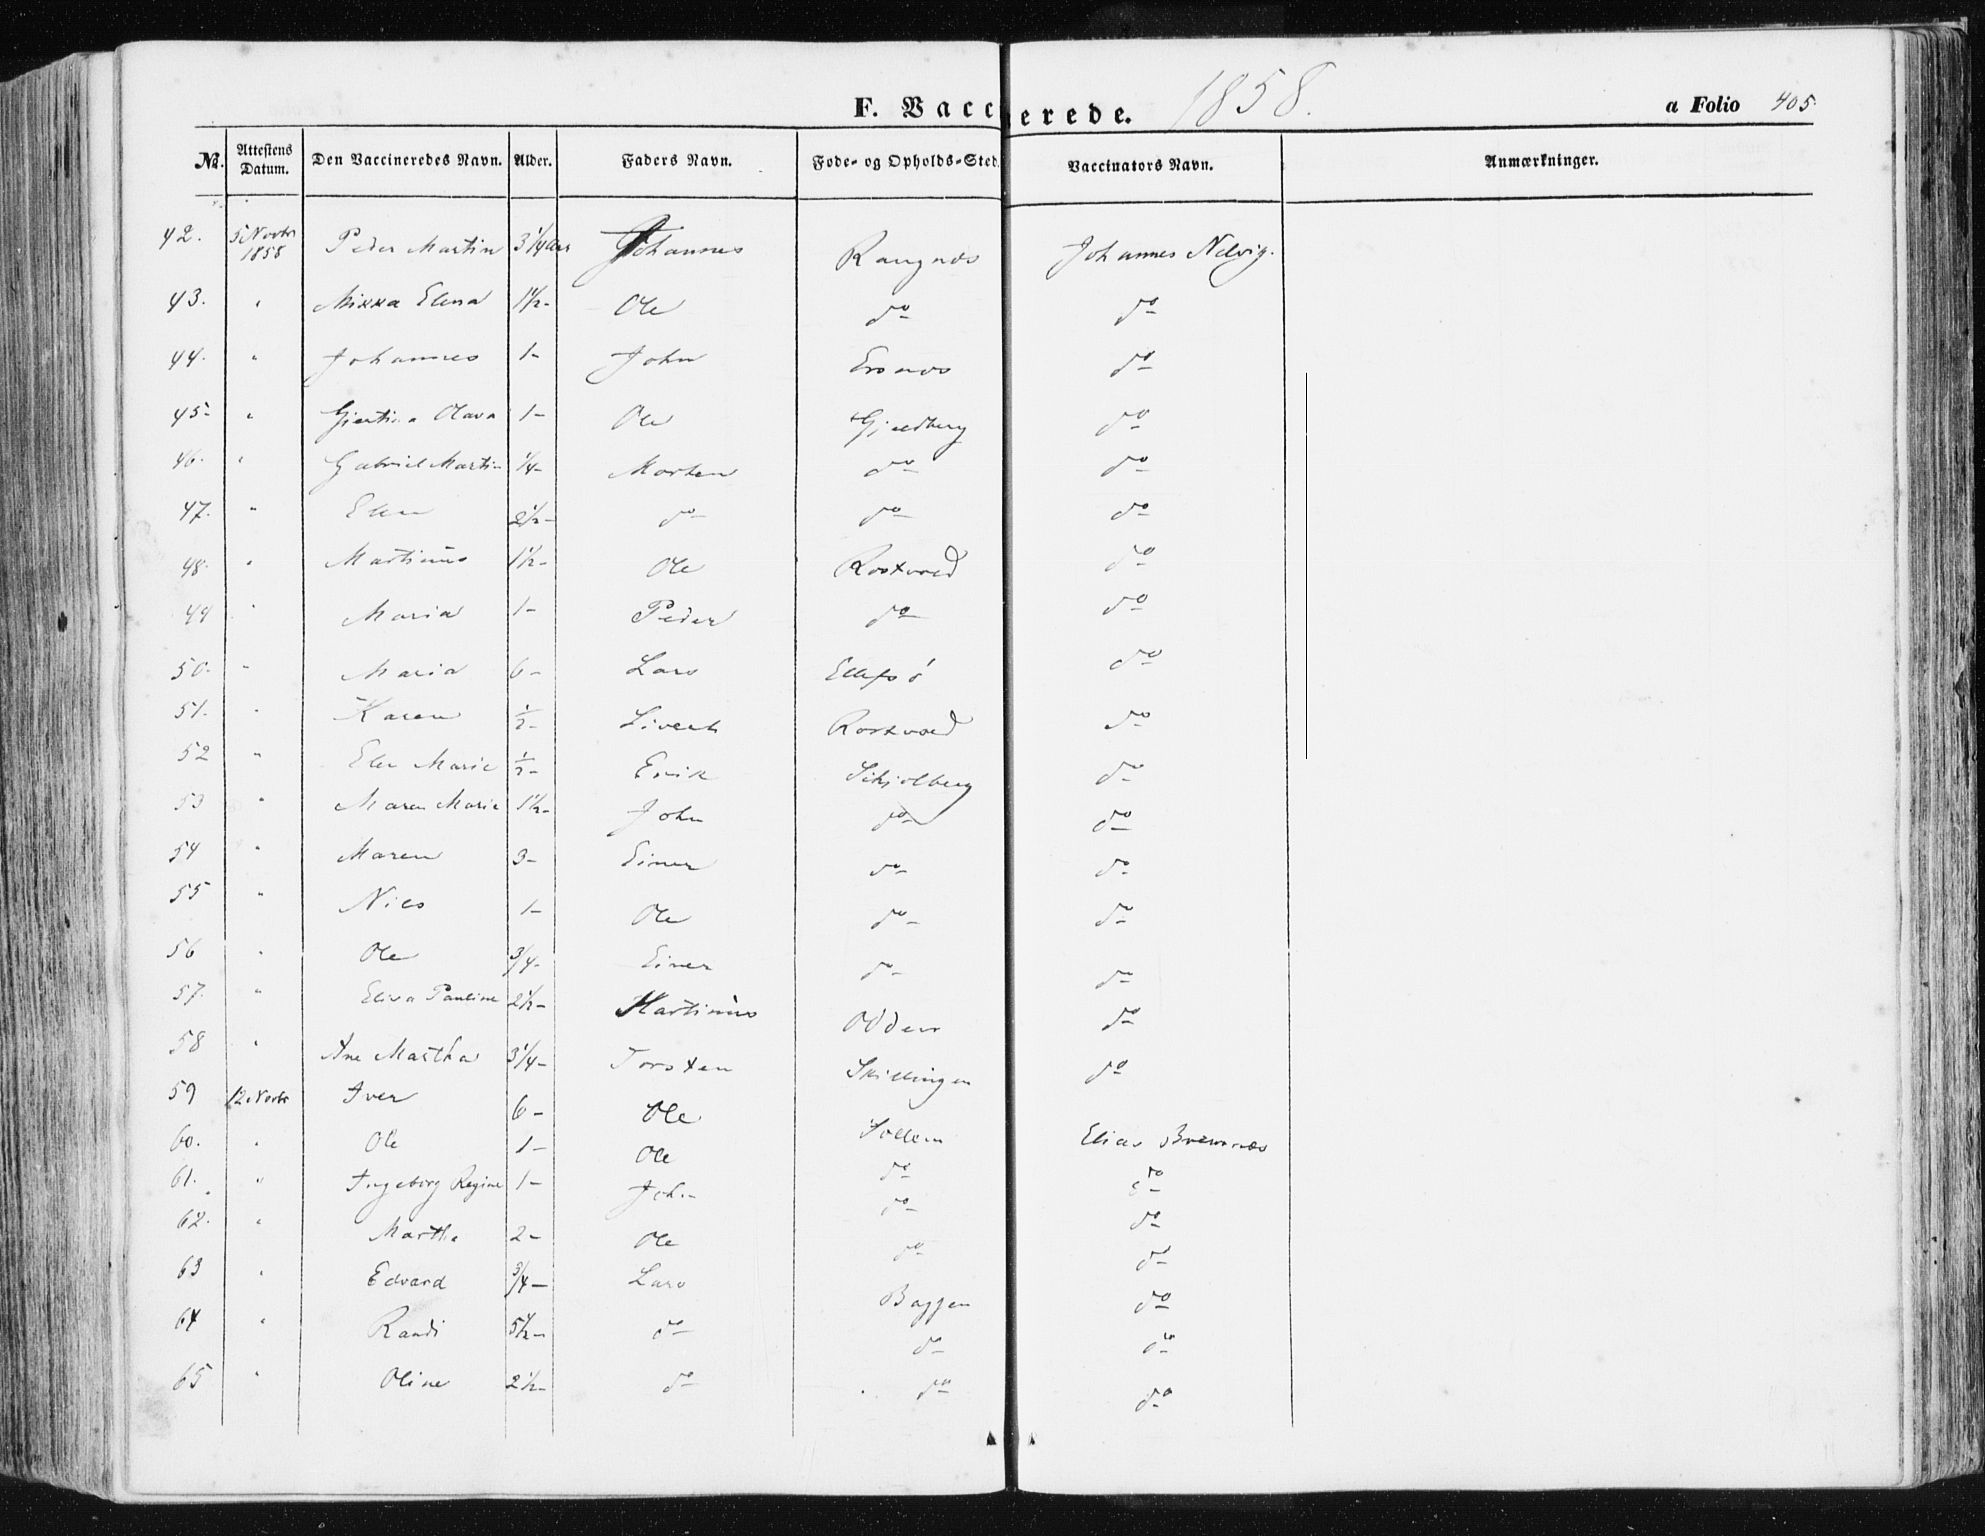 F. Vaccinerede. 1858. a Folio 405.
No. Attestens Datum. Den Vaccineredes Navn. Alder. Faders Navn. Føde- og Opholds-Sted. Vaccinators Navn. Anmærkninger.
42. 5 Novbr 1858 Peder Martin 3 1/4 Aar Johannes Johannes Nelvig.
43. " Elena 1 1/2 - Ole do do
44. " Johannes 1 - John do
45 - " Olava 1 - Ole Gjeldberg do
46. " Gabriel Martin 1/4 - Morten do do
47. " Elen 2 1/2 - do do do
48. " Martinus 1 1/2 - Ole Rostvold do
49 " Maria 1 - Peder do do
50. " Maria 6 - Lars do
51. " Karen 1/2 - Sivert Rostvold do
52 " Elen Marie 1/2 - Erik Schjølberg do
53 " Maren Marie 1 1/2 - John do do
54 " Maren 3 - Einer do do
55 " Niels 1 - Ole do do
56 " Ole 3/4 - Einer do do
57. " Elisa Pauline 2 1/2 - Martinus Odden do
58 " Ane Martha 3 1/4 - Torsten Skillingen do
59 12 Novbr Iver 6 - Ole Sollem Elias Bremnes
60. " Ole 1 - Ole do do
61. " Ingeborg Regine 1 - John do do
62. " Martha 2 - Ole do do
63 " Edvard 3/4 - Lars Baggen do
64 " Randi 5 1/2 - do do do
65 " Oline 2 1/2 - do do do